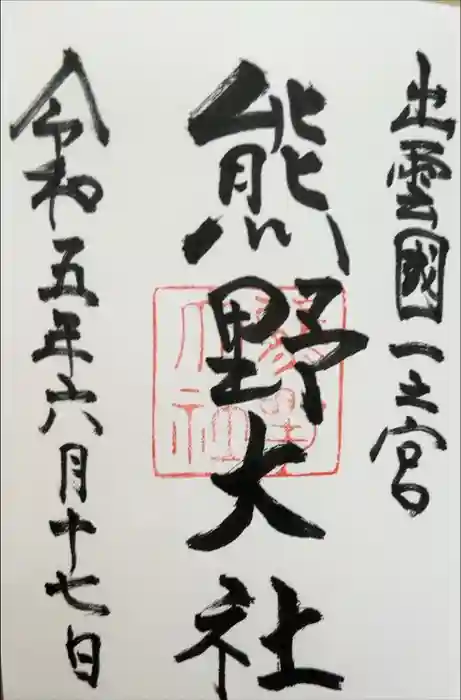 出雲國一之宮
熊野大社
令和五年六月十七日
熊野
大社